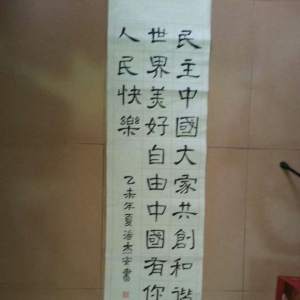 民主中國大家共創和諧
世界美好自由中國有你
人民快樂
乙未年夏
書